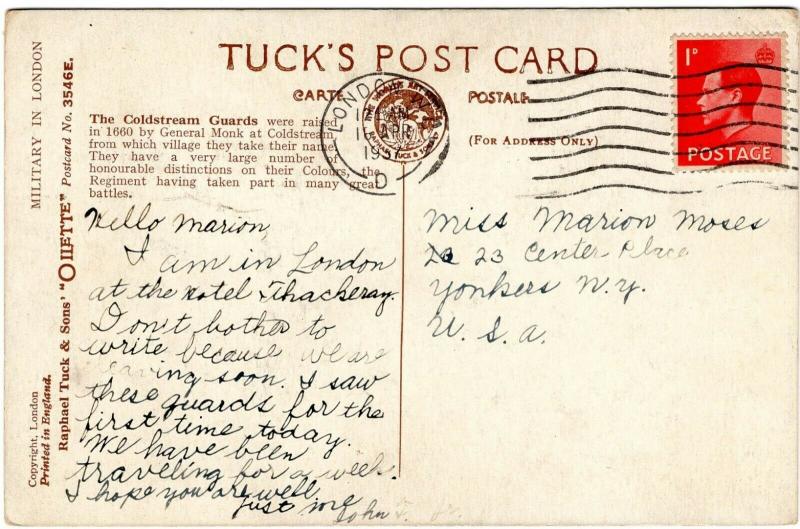 TUCK'S POST CARD
CARTE POSTALE
(FOR ADDRESS ONLY)
The Coldstream Guards were raised
in 1660 by General Monk at Coldstream,
from which village they take their name.
They have a very large number of
honourable distinctions on their Colours, the
Regiment having taken part in many great
battles.
MILITARY IN LONDON
Raphael Tuck & Sons' "OILETTE" Postcard No. 3546E.
Copyright, London
Printed in England.
LONDON
APR
193
D
RAPHAEL TUCK & SONS
1D
POSTAGE
Hello Marion,
I am in London
at the Hotel Thackeray.
Don't bother to
write because we are
leaving soon. I saw
these guards for the
first time today.
We have been
traveling for a week.
I hope you are well
Just me
John
Miss Marion Moses
23 Center Place
Yonkers N.Y.
U.S.A.